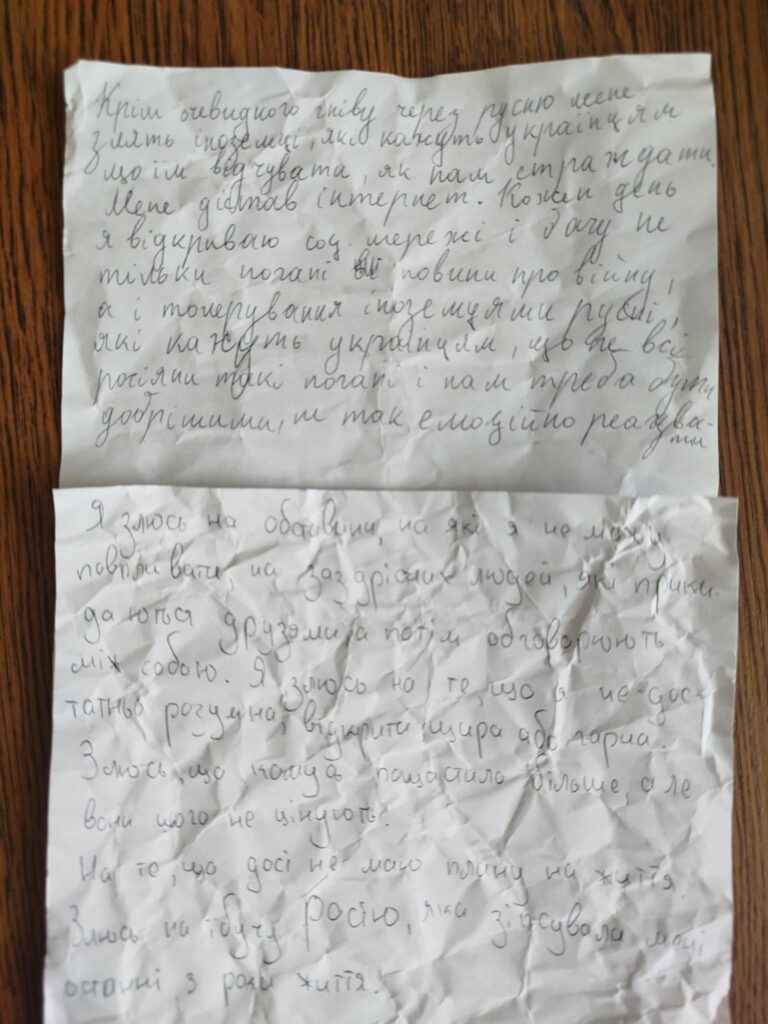 Крім очевидного гніву через русню мене
злять іноземці, які кажуть українцям
що їм відчувати, як нам страждати.
Мене дістав інтернет. Кожен день
я відкриваю соц. мережі і бачу не
тільки погані новини про війну,
а і толерування іноземцями русні,
які кажуть українцям, що не всі
росіяни такі погані і нам треба бути
добрішими, не так емоційно реагува-
ти
Я злюсь на обставини, на які я не можу
повпливати, на заздрісних людей, які прики-
даються друзями а потім обговорюють
між собою. Я злюсь на те, що я не дос-
татньо розумна, відкрита, щира або гарна.
Злюсь, що комусь пощастило більше, але
вони цього не цінують.
На те, що досі не маю плану на життя.
Злюсь на їбучу Росію, яка зіпсувала мої
останні 3 роки життя.